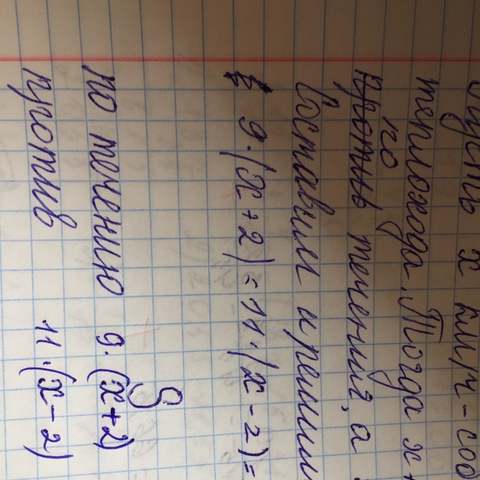 Пусть х км/ч - соб
теплохода. Тогда х +
по
против течения, а
Составим и решим
9·(х+2)=11·(х-2)=
S
по течению 9·(х+2)
против 11·(х-2)